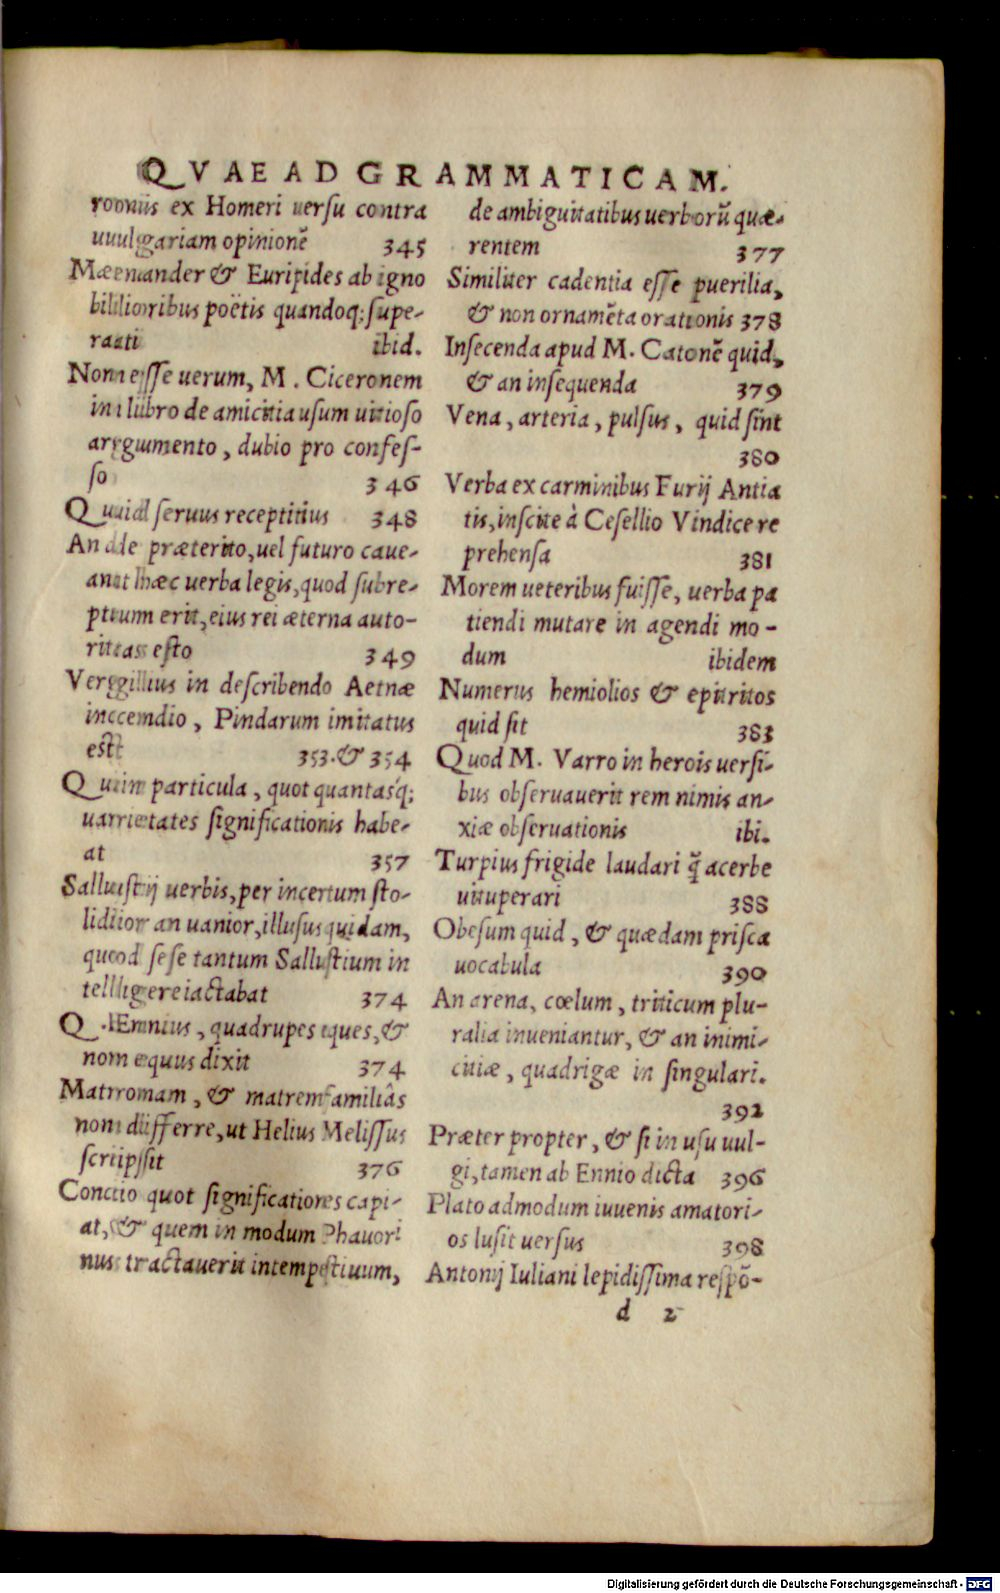 QVAE AD GRAMMATICAM.
roonius ex Homeri uersu contra
uuulgariam opinionē 345
Mæenander & Euripides ab igno
bilioribus poëtis quandoq; supe-
rati ibid.
Non esse uerum, M. Ciceronem
in libro de amicitia usum uitioso
argumento, dubio pro confes-
so 346
Quid seruus receptitius 348
An de præterito, uel futuro caue-
ant hæc uerba legis, quod subre-
ptum erit, eius rei æterna auto-
ritas esto 349
Vergilius in describendo Aetnæ
incendio, Pindarum imitatus
est 353. & 354
Quin particula, quot quantasq́;
uarietates significationis habe-
at 357
Sallustij uerbis, per incertum sto-
lidior an uanior, illusus quidam,
quod sese tantum Sallustium in
telligere iactabat 374
Q. Ennius, quadrupes eques, &
non equus dixit 374
Matronam, & matremfamiliâs
non differre, ut Helius Melissus
scripsit 376
Concio quot significationes capi-
at, & quem in modum Phauori
nus tractauerit intempestiuum,
de ambiguitatibus uerborū quæ-
rentem 377
Similiter cadentia esse puerilia,
& non ornamēta orationis 378
Insecenda apud M. Catonē quid,
& an insequenda 379
Vena, arteria, pulsus, quid sint
380
Verba ex carminibus Furij Antia
tis, inscite à Cesellio Vindice re
prehensa 381
Morem ueteribus fuisse, uerba pa
tiendi mutare in agendi mo-
dum ibidem
Numerus hemiolios & epitritos
quid sit 383
Quod M. Varro in herois uersi-
bus obseruauerit rem nimis an-
xiæ obseruationis ibi.
Turpius frigide laudari q̃ acerbe
uituperari 388
Obesum quid, & quædam prisca
uocabula 390
An arena, cœlum, triticum plu-
ralia inueniantur, & an inimi-
citiæ, quadrigæ in singulari.
392
Præter propter, & si in usu uul-
gi, tamen ab Ennio dicta 396
Plato admodum iuuenis amatori-
os lusit uersus 398
Antonij Iuliani lepidissima respō-
d 2
Digitalisierung gefördert durch die Deutsche Forschungsgemeinschaft - DFG